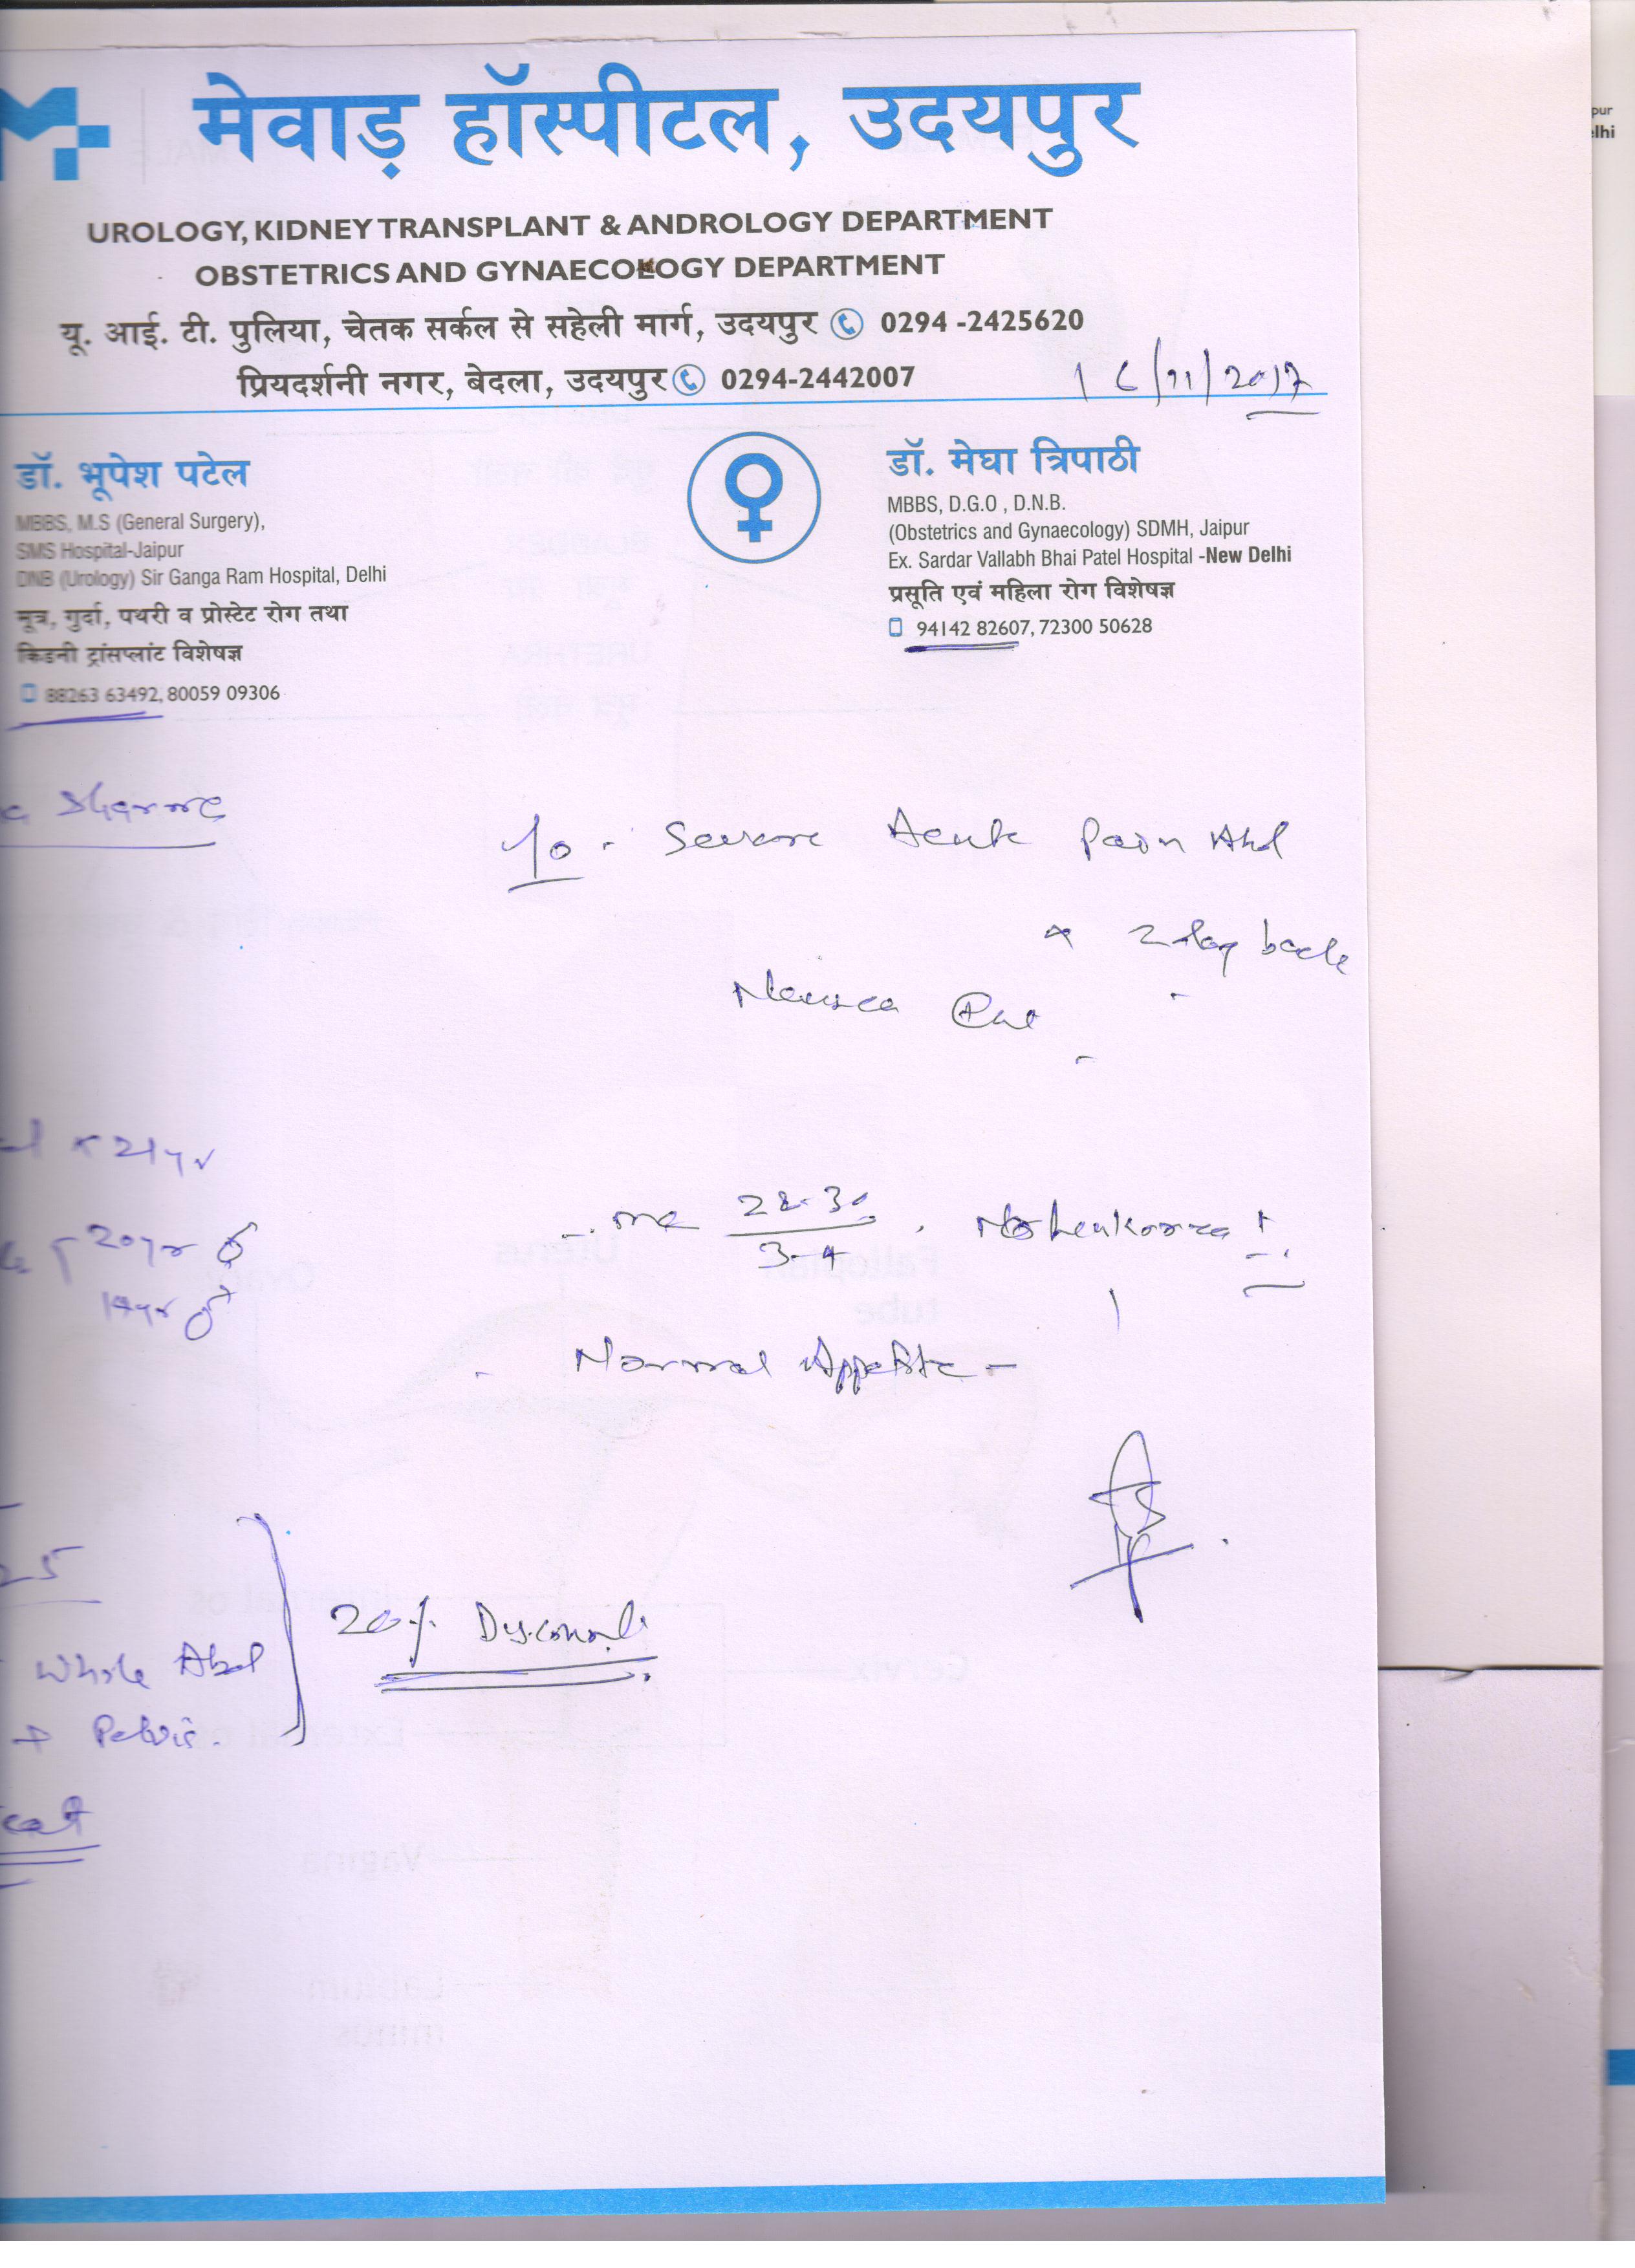 मेवाड़ हॉस्पीटल, उदयपुर
UROLOGY, KIDNEY TRANSPLANT & ANDROLOGY DEPARTMENT
OBSTETRICS AND GYNAECOLOGY DEPARTMENT
यू. आई. टी. पुलिया, चेतक सर्कल से सहेली मार्ग, उदयपुर 0294 -2425620
प्रियदर्शनी नगर, बेदला, उदयपुर 0294-2442007
16/11/2017
डॉ. भूपेश पटेल
MBBS, M.S (General Surgery),
SMS Hospital-Jaipur
DNB (Urology) Sir Ganga Ram Hospital, Delhi
मूत्र, गुर्दा, पथरी व प्रोस्टेट रोग तथा
किडनी ट्रांसप्लांट विशेषज्ञ
88263 63492, 80059 09306
डॉ. मेघा त्रिपाठी
MBBS, D.G.O , D.N.B.
(Obstetrics and Gynaecology) SDMH, Jaipur
Ex. Sardar Vallabh Bhai Patel Hospital -New Delhi
प्रसूति एवं महिला रोग विशेषज्ञ
94142 82607, 72300 50628
Sharma
Severe Acute Pain Abd
2 day back
Nausea
x 21yr
20yr ♂
28-30
3-4
Normal Appetite -
25
Whole Abd
+ Pelvis.
20% Discount
pur
elhi